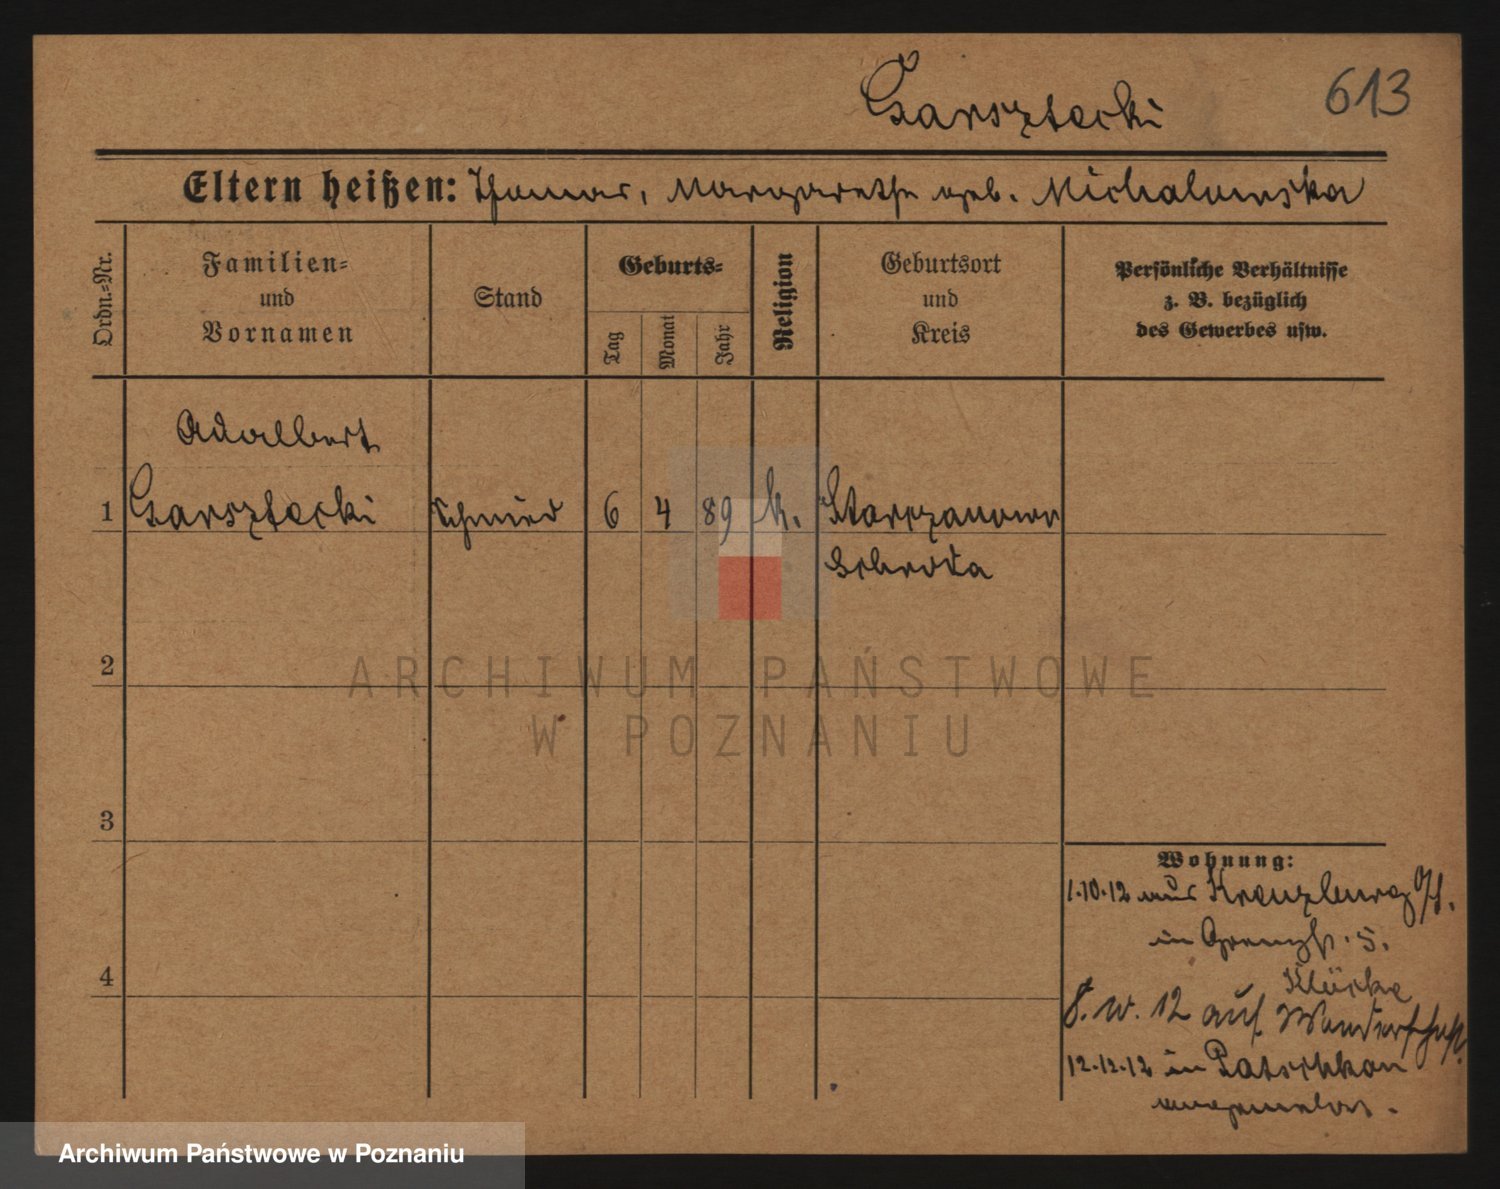 Garsztecki 613
Eltern heißen: Thomas, Margarethe geb. Michalowska
Ordn.-Nr.
Familien-
und
Vornamen
Stand
Geburts-
Tag
Monat
Jahr
Religion
Geburtsort
und
Kreis
Persönliche Verhältnisse
z. B. bezüglich
des Gewerbes usw.
Adalbert
1 Garsztecki Schmied 6 4 89 k. Starczanowo
Schroda
2
3
4
Wohnung:
1.10.12 aus Kreuzburg O/S.
in Grenzstr. 5.
8. 12 auf Wanderschaft.
12.12.12 in Patschkau
angemeldet.
ARCHIWUM PAŃSTWOWE
W POZNANIU
Archiwum Państwowe w Poznaniu